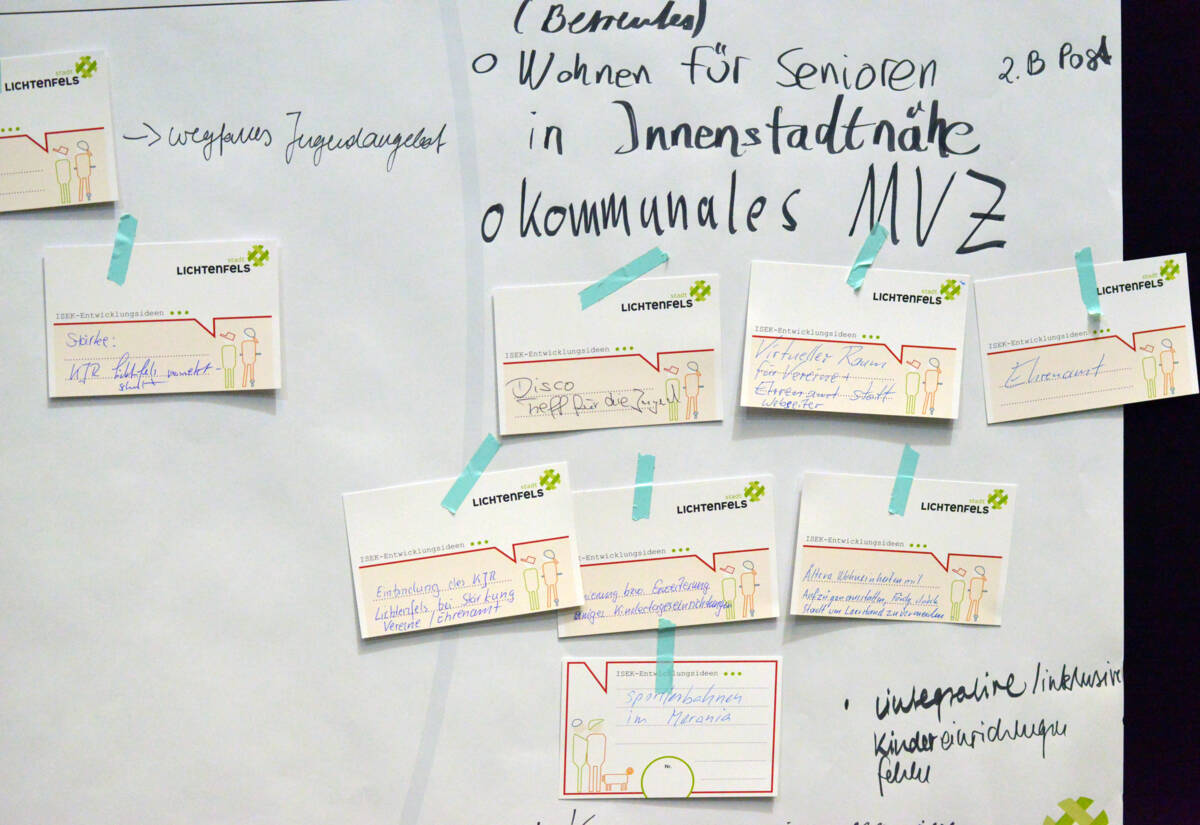 (Betreutes)
o Wohnen für Senioren 2.B Post
in Innenstadtnähe
o kommunales MVZ
stadt
LICHTENFELS
→ Jugendangebot
stadt
LICHTENFELS
ISEK-Entwicklungsideen
Stärke:
KJR Lichtfels
stadt
LICHTENFELS
ISEK-Entwicklungsideen
Disco
Treff für die Jugend
stadt
LICHTENFELS
ISEK-Entwicklungsideen
Virtueller Raum
für Vereine +
Ehrenamt statt
Webseiter
stadt
LICHTENFELS
ISEK-Entwicklungsideen
Ehrenamt
stadt
LICHTENFELS
ISEK-Entwicklungsideen
Einbindung des KJR
Lichtenfels bei Stärkung
Vereine / Ehrenamt
stadt
LICHTENFELS
ISEK-Entwicklungsideen
bzw. Erweiterung
einiger Kindertageseinrichtungen
stadt
LICHTENFELS
ISEK-Entwicklungsideen
Ältere Wohneinheiten mit
Aufzügen ausstatten,
Stadt um Leerstand zu vermeiden
ISEK-Entwicklungsideen
im Merania
Nr.
• integrative/inklusive
Kindereinrichtungen
fehlen